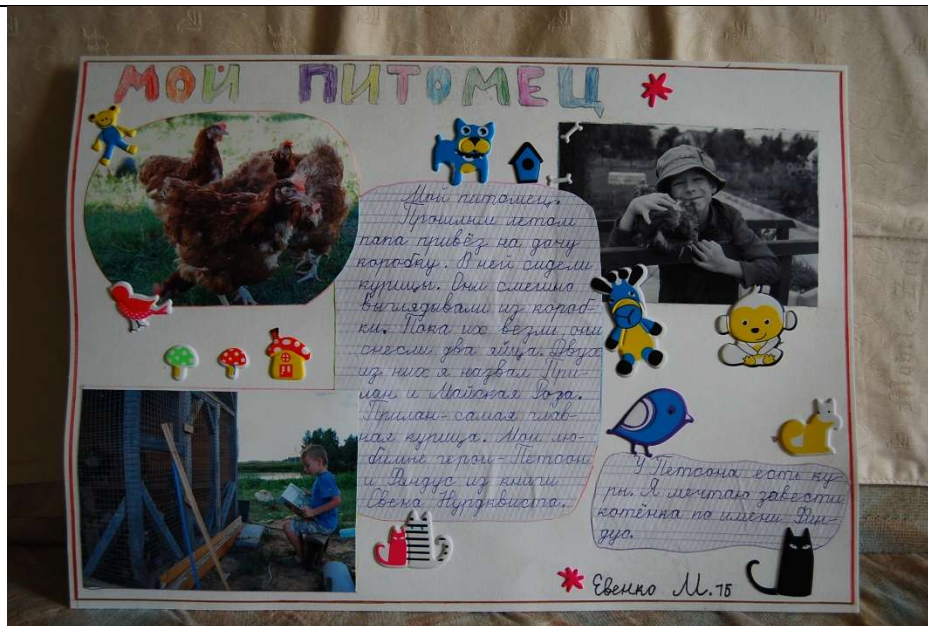 МОЙ ПИТОМЕЦ
Мой питомец.
Прошлым летом
папа привёз на дачу
коробку. В ней сидели
курицы. Они смешно
выглядывали из короб-
ки. Пока их везли они
снесли два яйца. Двух
из них я назвал При-
лан и Майская Роза.
Прилан - самая глав-
ная курица. Мои лю-
бимые герои - Петсон
и Финдус из книги
Свена Нурдквиста.
У Петсона есть ку-
ры. Я мечтаю завести
котёнка по имени Фин-
дус.
Евенко М. 1Б